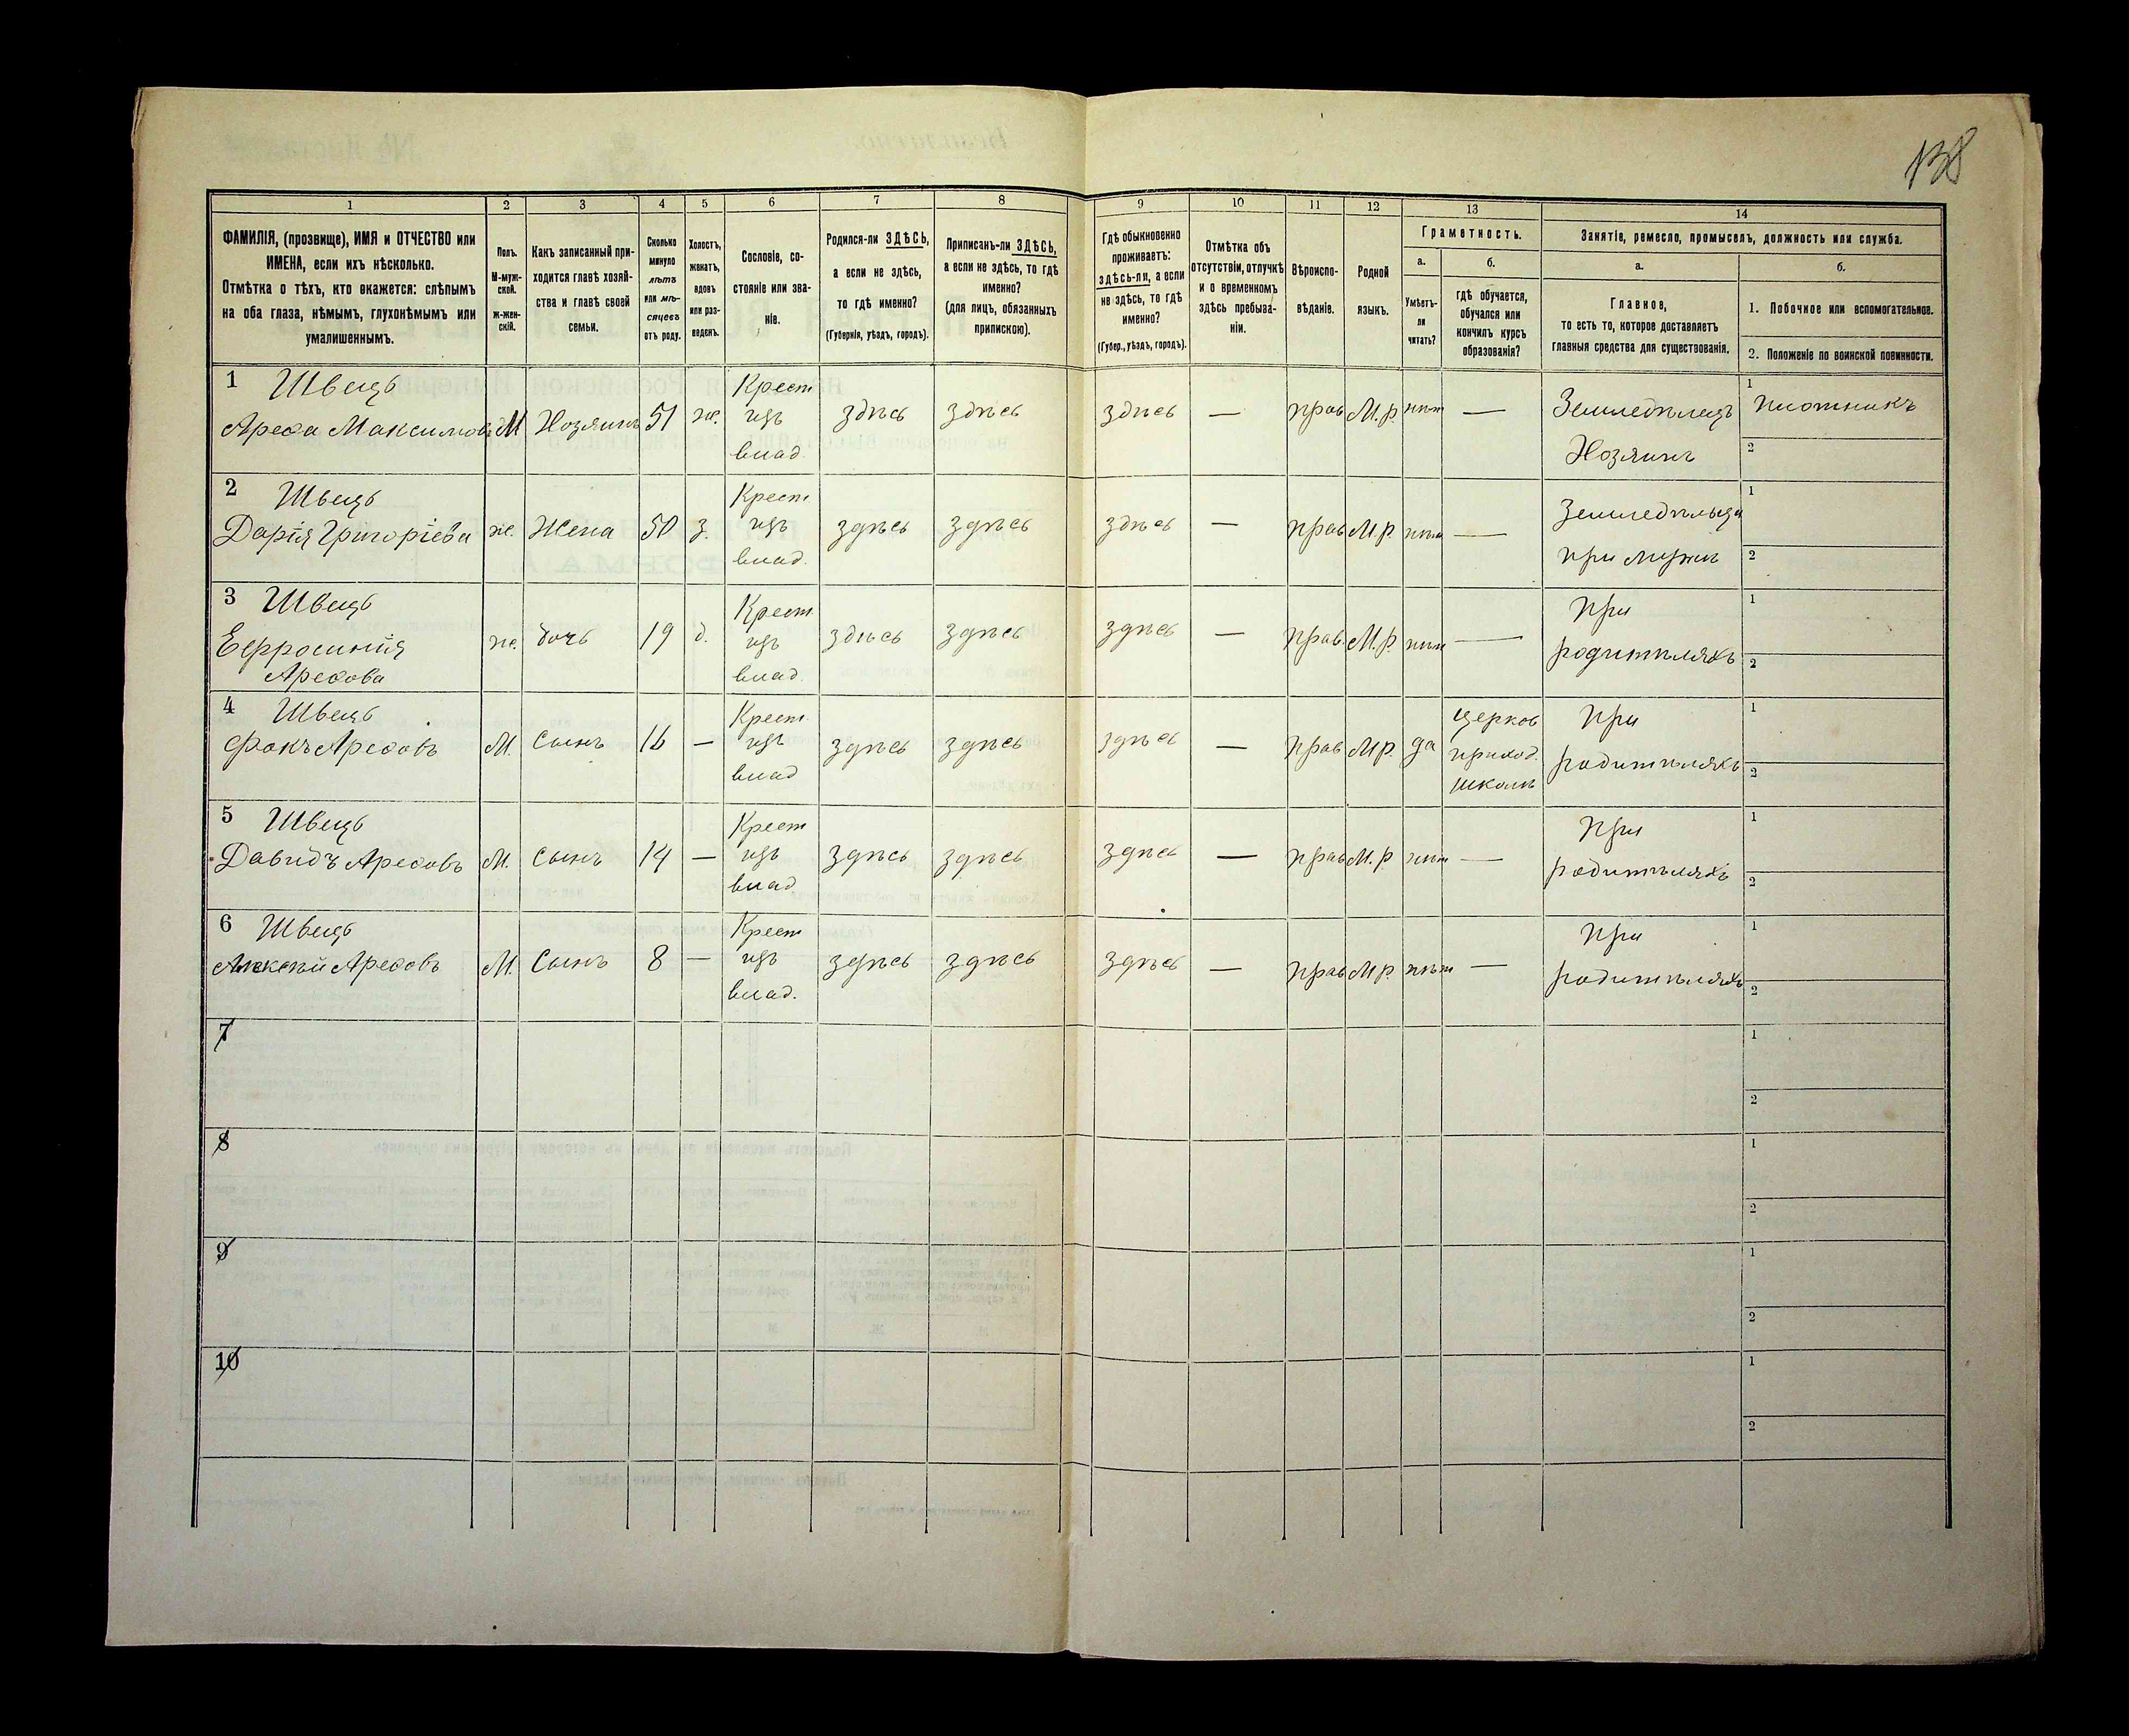 138
1 2 3 4 5 6 7 8 9 10 11 12 13 14
ФАМИЛІЯ, (прозвище), ИМЯ и ОТЧЕСТВО или
ИМЕНА, если ихъ нѣсколько.
Отмѣтка о тѣхъ, кто окажется: слѣпымъ
на оба глаза, нѣмымъ, глухонѣмымъ или
умалишеннымъ.
Полъ.
М-муж-
ской.
ж-жен-
скій.
Какъ записанный при-
ходится главѣ хозяй-
ства и главѣ своей
семьи.
Сколько
минуло
лѣтъ
или мѣ-
сяцевъ
отъ роду.
Холостъ,
женатъ,
вдовъ
или раз-
веденъ.
Сословіе, со-
стояніе или зва-
ніе.
Родился-ли ЗДѢСЬ,
а если не здѣсь,
то гдѣ именно?
(Губернія, уѣздъ, городъ).
Приписанъ-ли ЗДѢСЬ,
а если не здѣсь, то гдѣ
именно?
(для лицъ, обязанныхъ
припискою).
Гдѣ обыкновенно
проживаетъ:
здѣсь-ли, а если
не здѣсь, то гдѣ
именно?
(Губер., уѣздъ, городъ).
Отмѣтка объ
отсутствіи, отлучкѣ
и о временномъ
здѣсь пребыва-
ніи.
Вѣроиспо-
вѣданіе.
Родной
языкъ.
Грамотность.
а.
Умѣетъ-
ли
читать?
б.
гдѣ обучается,
обучался или
кончилъ курсъ
образованія?
Занятіе, ремесло, промыселъ, должность или служба.
а.
Главное,
то есть то, которое доставляетъ
главныя средства для существованія.
б.
1. Побочное или вспомогательное.
2. Положеніе по воинской повинности.
1 Швець
Арефа Максимовъ М Хозяинъ 51 ж. Крест изъ влад. здѣсь здѣсь здѣсь — прав М.р. нѣт — Земледѣлецъ Хозяинъ 1 Плотникъ 2
2 Швець
Дарія Григоріева ж. Жена 50 з. Крест. изъ влад. здѣсь здѣсь здѣсь — прав М.р. нѣт — Земледѣльца при мужѣ 1 2
3 Швець
Евфросинія
Арефова ж. дочь 19 д. Крест. изъ влад. здѣсь здѣсь здѣсь — прав. М.р. нѣт — При родителяхъ 1 2
4 Швець
Фокъ Арефовъ М. Сынъ 16 — Крест. изъ влад здѣсь здѣсь здѣсь — прав М.р. да церков приход. школѣ При родителяхъ 1 2
5 Швець
Давидъ Арефовъ М. Сынъ 14 — Крест изъ влад здѣсь здѣсь здѣсь — прав М.р нѣт — При родителяхъ 1 2
6 Швець
Алексѣй Арефовъ М. Сынъ 8 — Крест изъ влад. здѣсь здѣсь здѣсь — прав М.р. нѣт — При родителяхъ 1 2
7 1 2
8 1 2
9 1 2
10 1 2